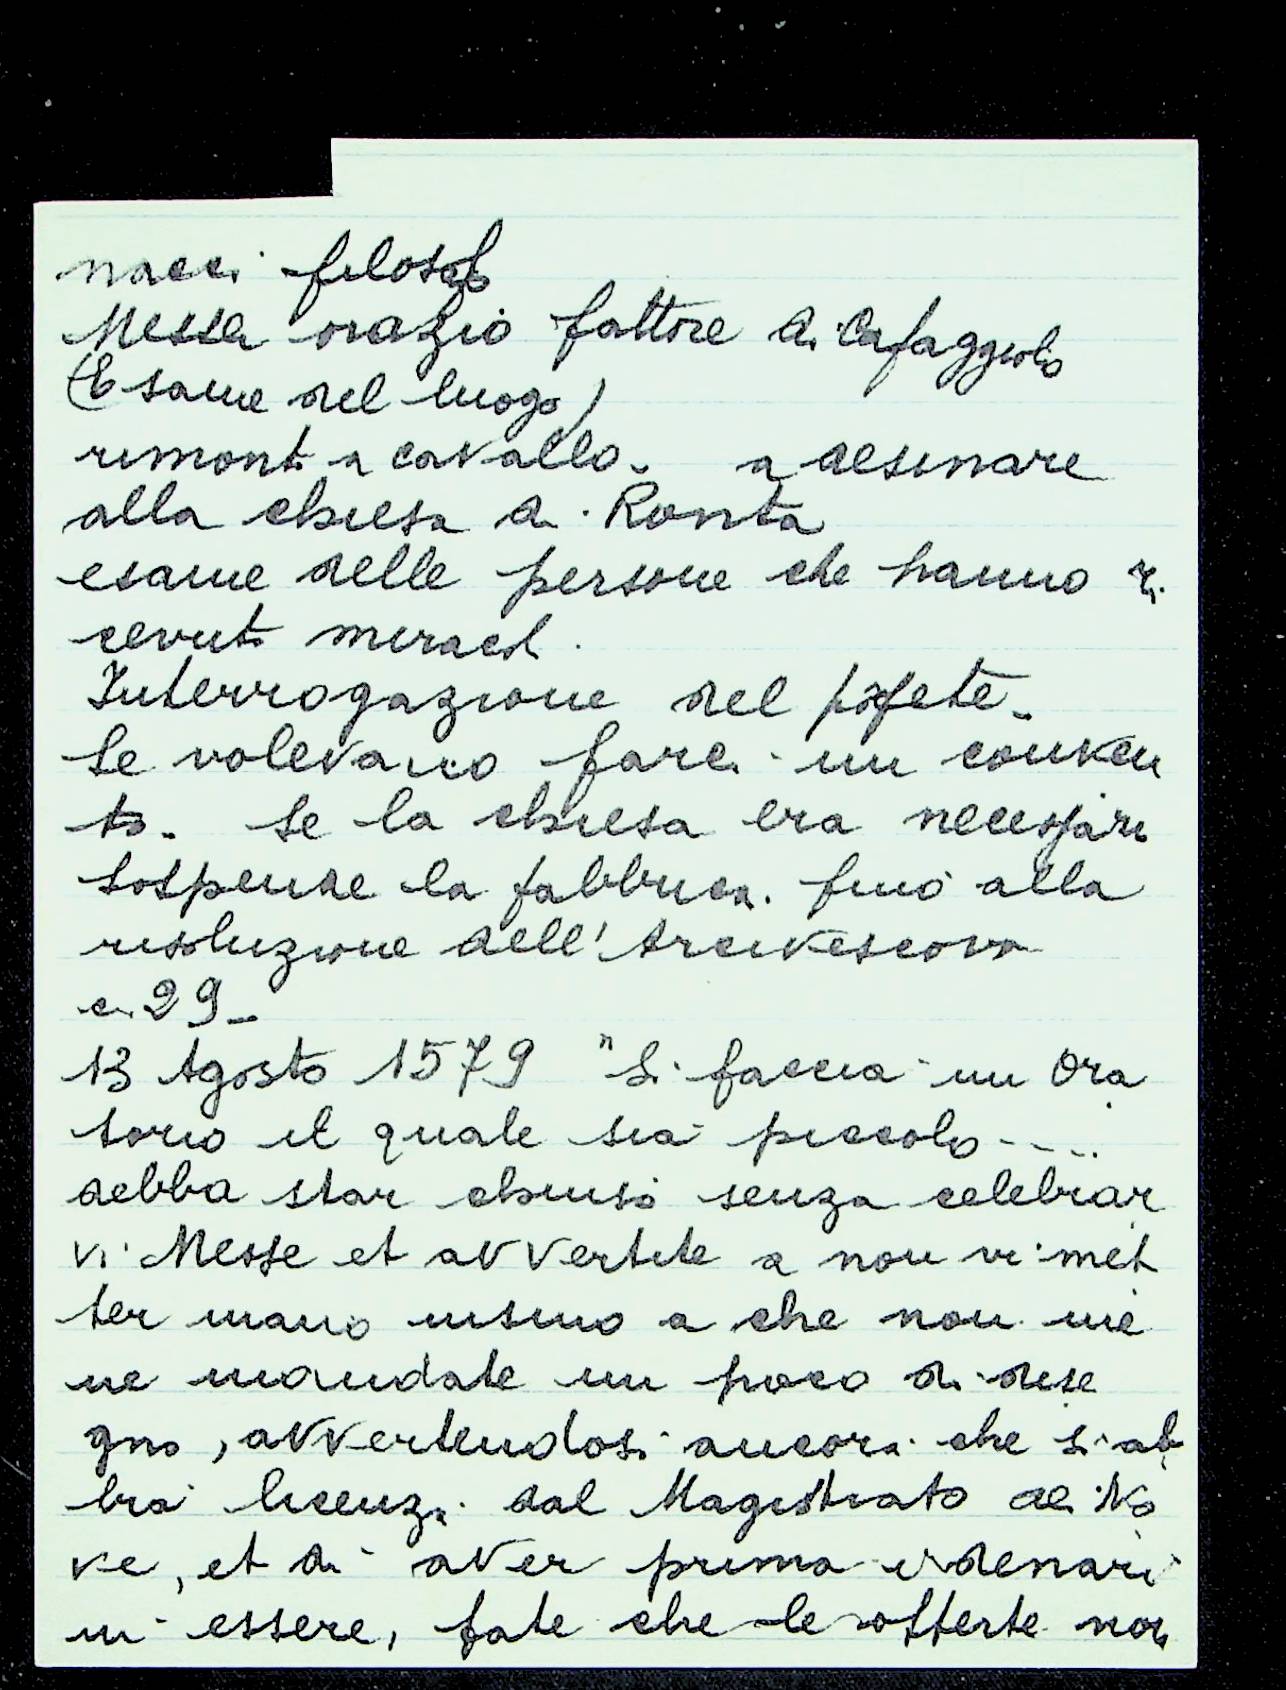 nacci filosofo
Messer orazio fattore di Cafaggiolo
(Esame del luogo)
rimonta a cavallo. a desinare
alla chiesa di Ronta
esame delle persone che hanno ri
cevuti miracoli.
Interrogazione del prefete.
Se volevano farci un conven
to. Se la chiesa era necessaria
sospende la fabbrica fino alla
risoluzione dell'Arcivescovo
c. 29_
13 Agosto 1579 "Si faccia un Ora
torio il quale sia piccolo ....
debba star chiuso senza celebrar
vi Messe et avvertite a non vi met
ter mano insino a che non me
ne mandate un poco di dise
gno, avvertendosi ancora che si ab
bia licenza dal Magistrato de No
ve, et di aver prima i denari
in essere, fate che le offerte non